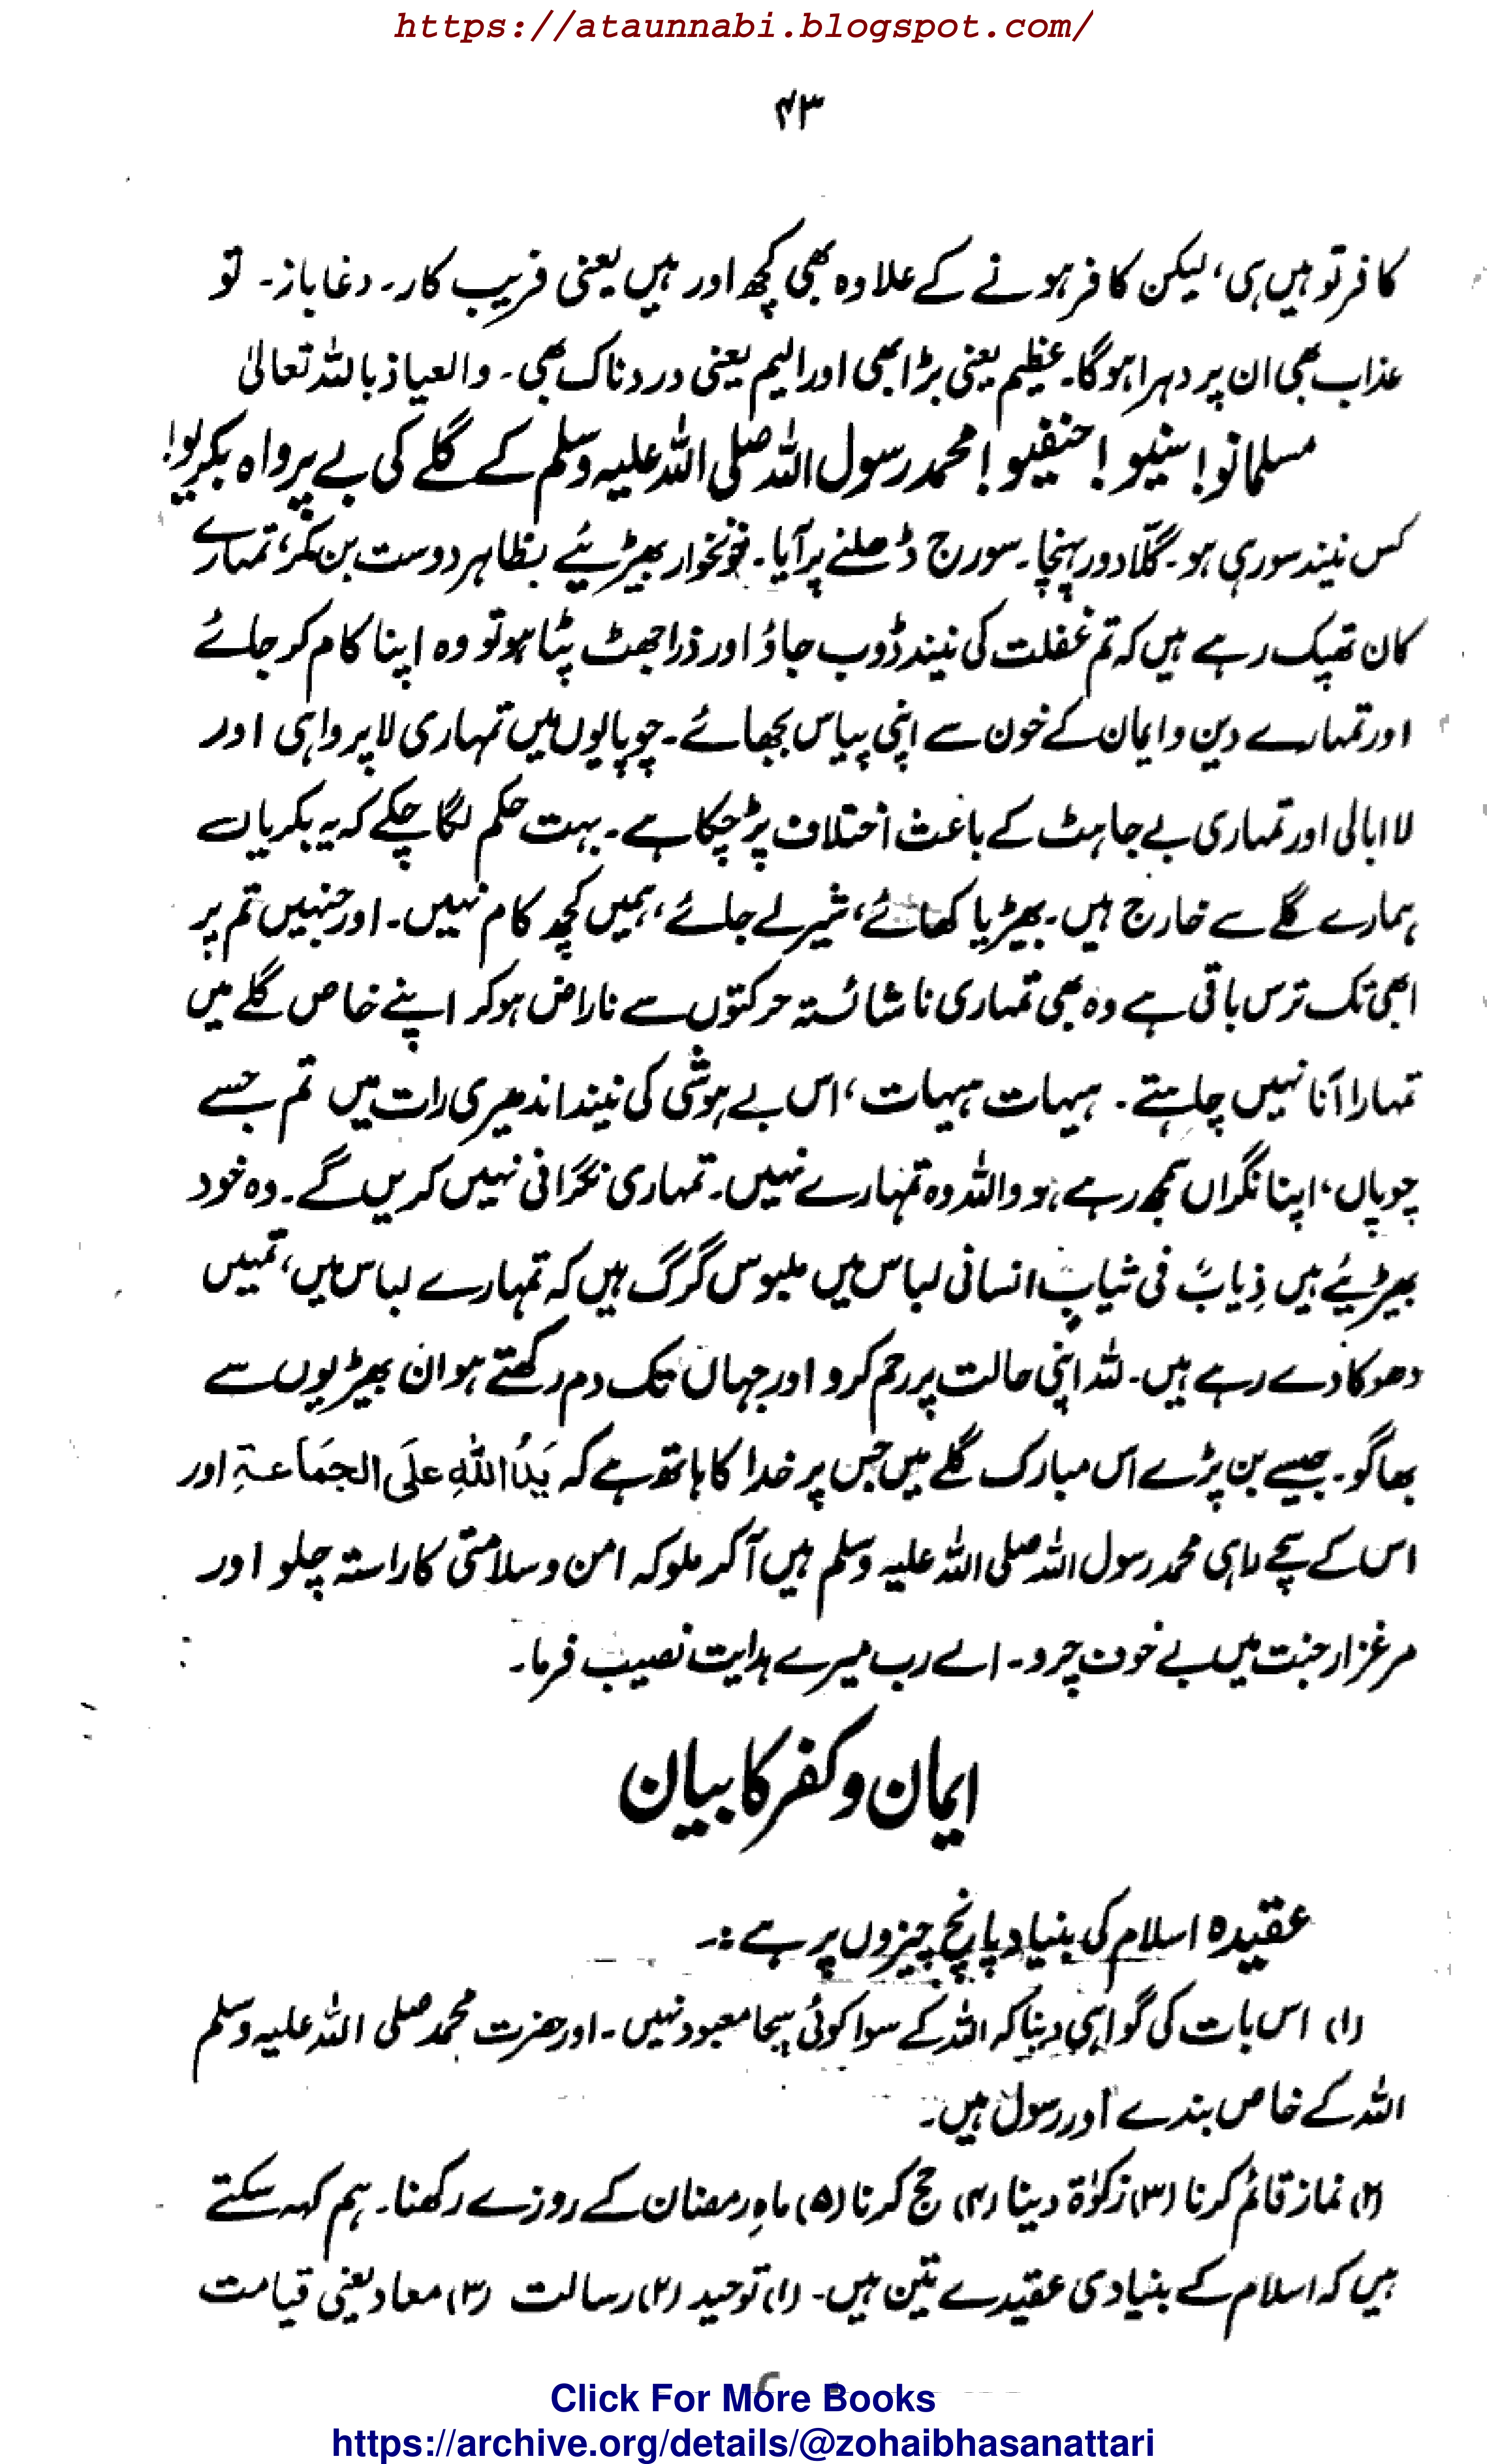 https://ataunnabi.blogspot.com/
۴۳
کافر تو ہیں ہی، لیکن کافر ہونے کے علاوہ بھی کچھ اور ہیں یعنی فریب کار۔ دغاباز۔ تو
عذاب بھی ان پر دہرا ہوگا۔ عظیم یعنی بڑا بھی اور الیم یعنی دردناک بھی۔ والعیاذ باللہ تعالیٰ
مسلمانو! سنیو! حنفیو! محمد رسول اللہ صلی اللہ علیہ وسلم کے گلے کی بے پرواہ بکریو!
کس نیند سو رہی ہو۔ گلّا دور پہنچا۔ سورج ڈھلنے پر آیا۔ خونخوار بھیڑیئے بظاہر دوست بن کر، تمہارے
کان تھپک رہے ہیں کہ تم غفلت کی نیند ڈوب جاؤ اور ذرا جھٹ پٹا ہو تو وہ اپنا کام کر جائے
اور تمہارے دین و ایمان کے خون سے اپنی پیاس بجھائے۔ چوپایوں میں تمہاری لاپرواہی اور
لا ابالی اور تمہاری بے جا ہٹ کے باعث اختلاف پڑ چکا ہے۔ بہت حکم لگا چکے کہ یہ بکریاں
ہمارے گلے سے خارج ہیں۔ بھیڑیا کھائے، شیر لے جائے، ہمیں کچھ کام نہیں۔ اور جنہیں تم پر
ابھی تک ترس باقی ہے وہ بھی تمہاری ناشائستہ حرکتوں سے ناراض ہوکر اپنے خاص گلے میں
تمہارا آنا نہیں چاہتے۔ ہیہات ہیہات، اس بے ہوشی کی نیند اندھیری رات میں تم جسے
چوپاں، اپنا نگراں سمجھ رہے ہو واللہ وہ تمہارے نہیں۔ تمہاری نگرانی نہیں کریں گے۔ وہ خود
بھیڑیئے ہیں ذِیابٌ فی ثیابٍ انسانی لباس میں ملبوس گرگ ہیں کہ تمہارے لباس میں، تمہیں
دھوکا دے رہے ہیں۔ للہ اپنی حالت پر رحم کرو اور جہاں تک دم رکھتے ہو ان بھیڑیوں سے
بھاگو۔ جیسے بن پڑے اس مبارک گلے میں جس پر خدا کا ہاتھ ہے کہ یَدُ اللہِ علَی الجمَاعۃِ اور
اس کے سچے راہی محمد رسول اللہ صلی اللہ علیہ وسلم ہیں آ کر ملو کہ امن و سلامتی کا راستہ چلو اور
مرغزار جنت میں بے خوف چرو۔ اے رب میرے ہدایت نصیب فرما۔
ایمان و کفر کا بیان
عقیدہ اسلام کی بنیاد پانچ چیزوں پر ہے :۔
(۱) اس بات کی گواہی دینا کہ اللہ کے سوا کوئی سچا معبود نہیں۔ اور حضرت محمد صلی اللہ علیہ وسلم
اللہ کے خاص بندے اور رسول ہیں۔
(۲) نماز قائم کرنا (۳) زکوٰۃ دینا (۴) حج کرنا (۵) ماہِ رمضان کے روزے رکھنا۔ ہم کہہ سکتے
ہیں کہ اسلام کے بنیادی عقیدے تین ہیں۔ (۱) توحید (۲) رسالت (۳) معاد یعنی قیامت
Click For More Books
https://archive.org/details/@zohaibhasanattari